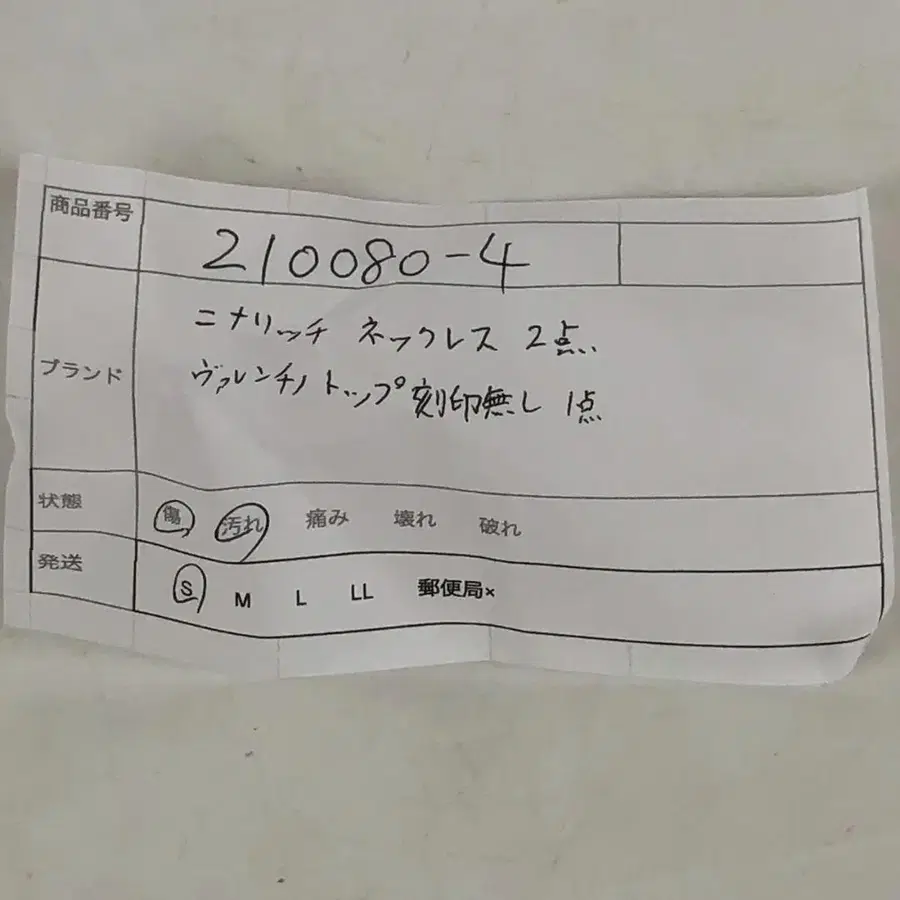 商品番号 210080-4
ニナリッチ ネックレス 2点、
ブランド
ヴァレンチノトップ刻印無し 1点
状態 傷 汚れ 痛み 壊れ 破れ
発送 S M L LL 郵便局×